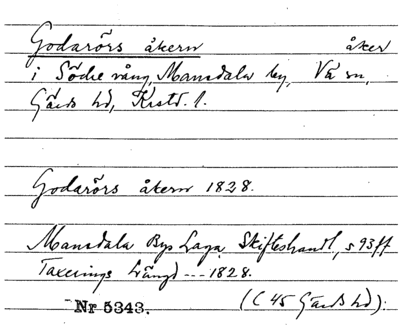 Godarörs åkern åker
i Södre vång, Mansdala by, Vä sn,
Gärds hd, Krstd. l.
Godarörs åkern 1828.
Mansdala Bys Laga Skifteshandl, s 93 ff
Taxerings Längd --- 1828.
Nr 5343. (C 45 Gärds hd).